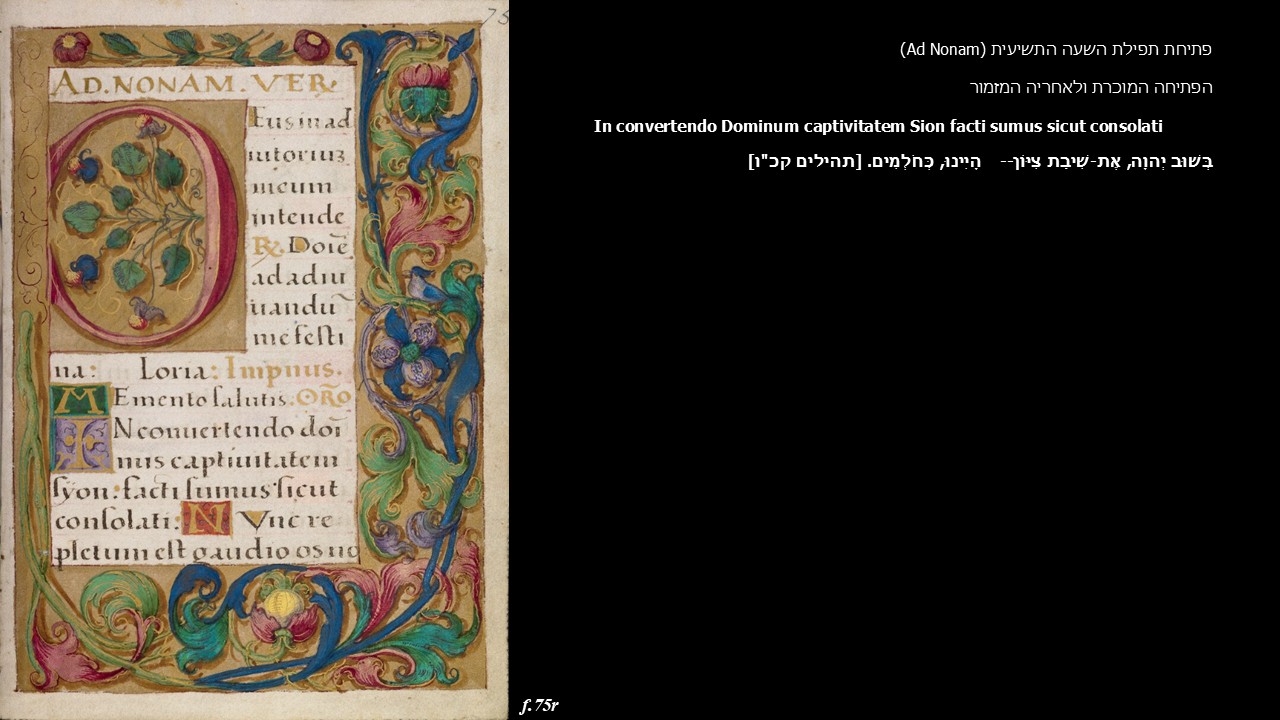 75
AD. NONAM. VER.
Eus in ad
iutoriuz
meum
intende
R. Doīe
ad adiu
uandū
me festi
na: Loria: Impnus.
MEmento salutis. ORO
IN conuertendo doī
nus captiuitatem
syon: facti sumus sicut
consolati: N Vnc re
pletum est gaudio os no
פתיחת תפילת השעה התשיעית (Ad Nonam)
הפתיחה המוכרת ולאחריה המזמור
In convertendo Dominum captivitatem Sion facti sumus sicut consolati
בְּשׁוּב יְהוָה, אֶת-שִׁיבַת צִיּוֹן-- הָיִינוּ, כְּחֹלְמִים. [תהילים קכ"ו]
f.75r